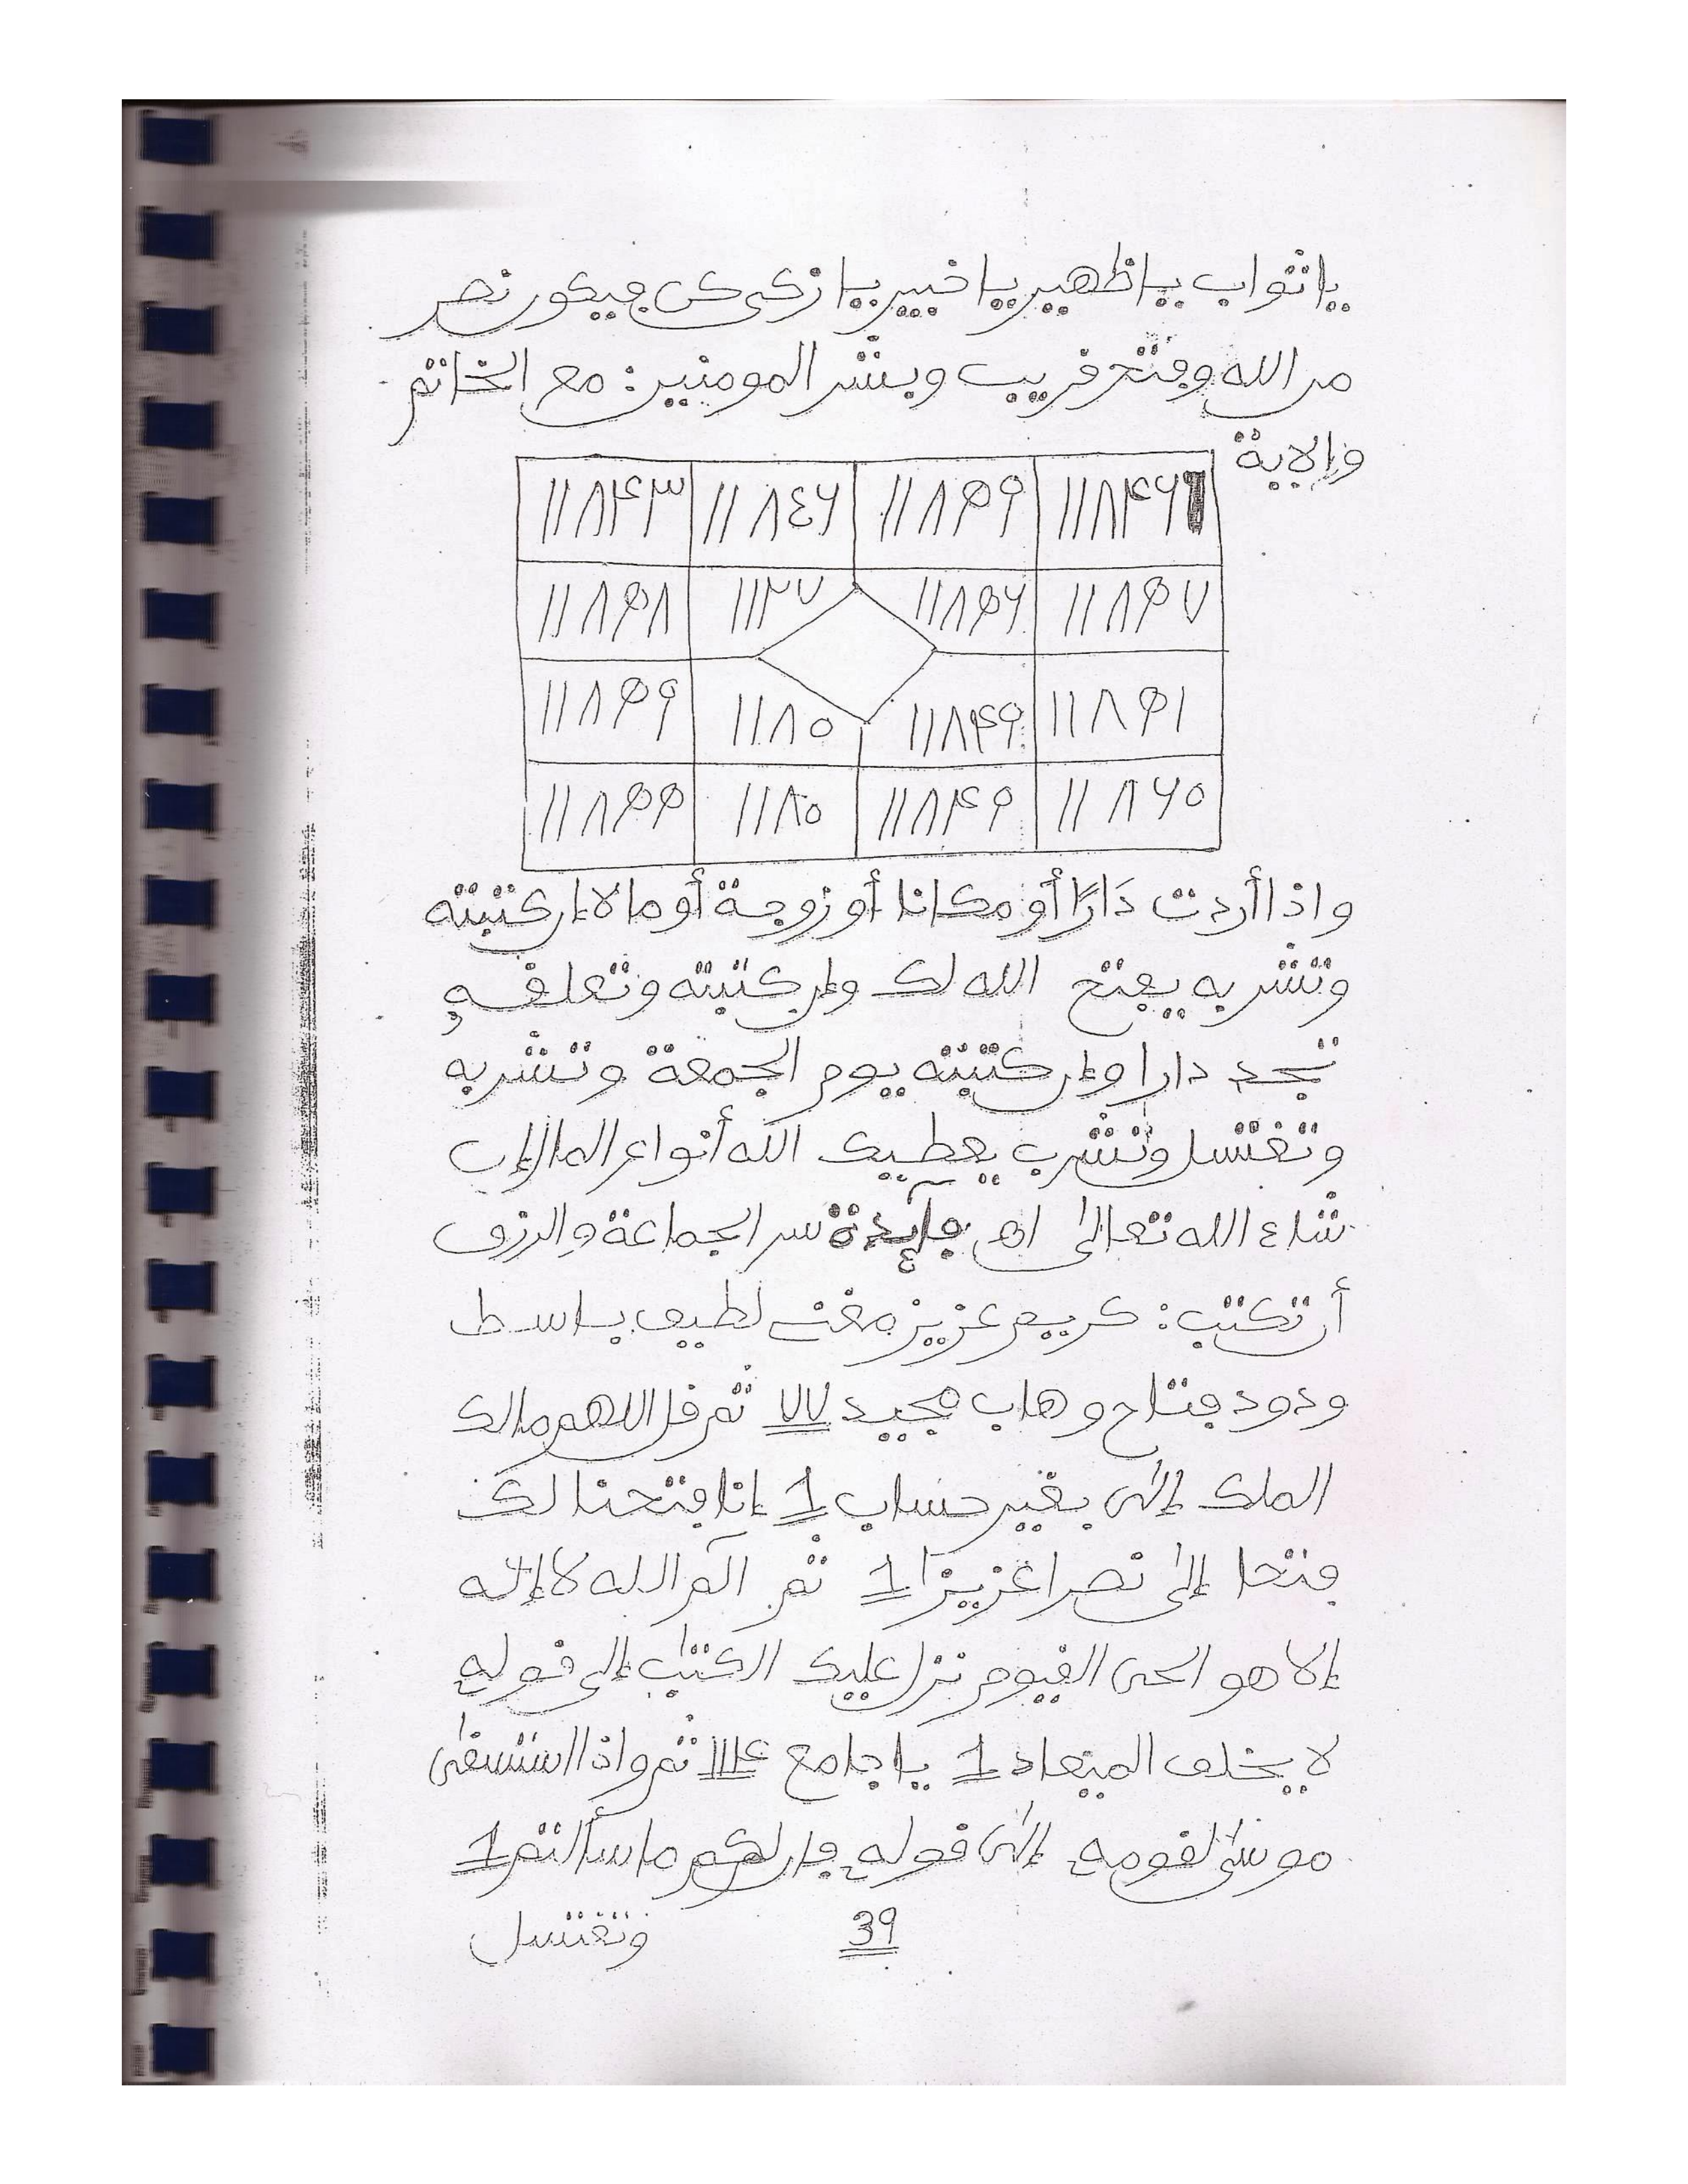 يا تواب يا ظهير يا خبير يا زكى كن فيكون نصر
من الله وفتح قريب وبشر المومنين: مع الخاتم
والاية
١١٨٤٣ ١١٨٤٦ ١١٨٥٩ ١١٨٤٦
١١٨٥٨ ١١٢٧ ١١٨٥٦ ١١٨٥٧
١١٨٥٩ ١١٨٥ ١١٨٤٩ ١١٨٥١
١١٨٥٥ ١١٨٥ ١١٨٤٩ ١١٨٦٥
واذا أردت دَارًا أو مكانا أو زوجة أو مالا إن كتبته
وتشربه يفتح الله لك وإن كتبته وتعلقه
تجد دارا وإن كتبته يوم الجمعة وتشربه
وتغتسل وتشرب يعطيك الله أنواع المال إن
شاء الله تعالى اه فايدة سر الجماعة والرزق
أن تكتب: كريم عزيز مغنى لطيف باسط
ودود فتاح وهاب مجيد ٧٧ ثم قل اللهم مالك
الملك إلى بغير حساب 1 إنا فتحنا لك
فتحا إلى نصرا عزيزا 1 ثم آلم الله لا إله
إلا هو الحى القيوم نزل عليك الكتٰب إلى قوله
لا يخلف الميعاد 1 يا جامع ١١٤ ثم واذ استسقى
موسى لقومه إلى قوله فإن لكم ما سألتم 1
39 وتغتسل